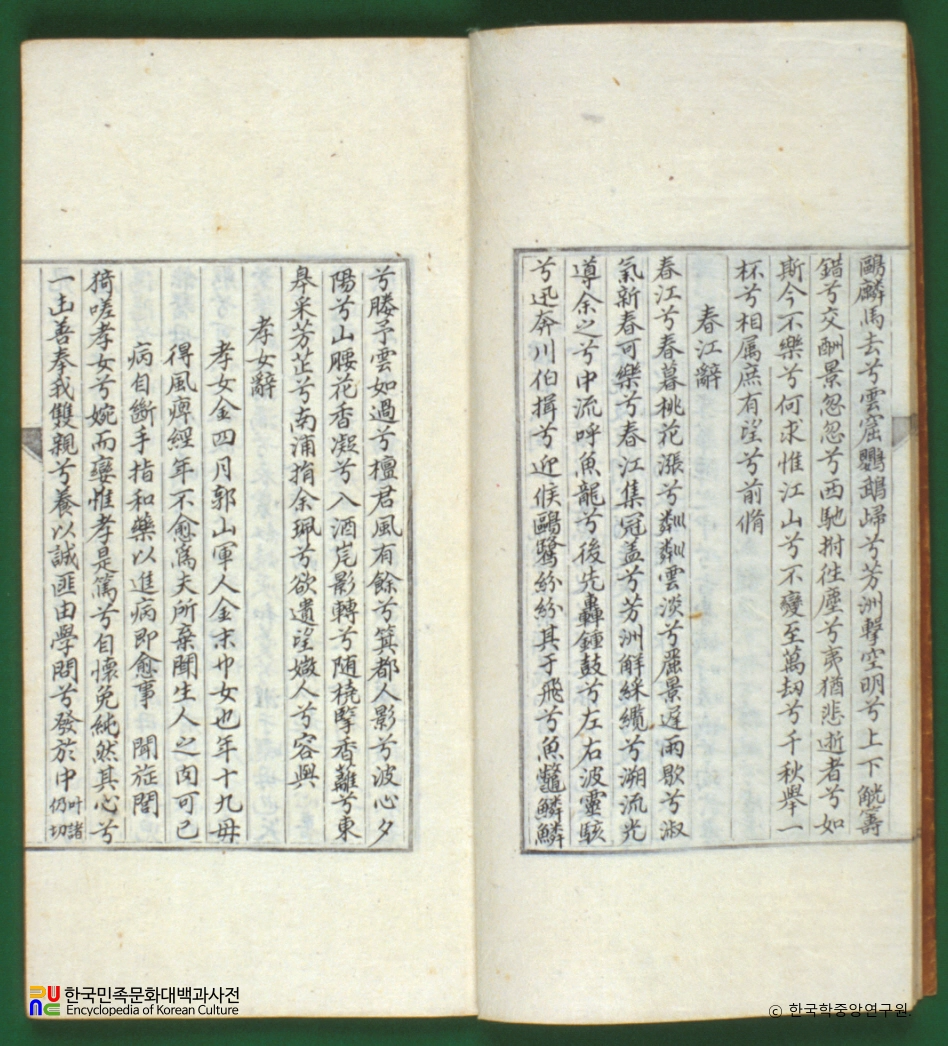 鷗麟馬去兮雲窟鸚鵡歸兮芳洲擊空明兮上下觥籌
錯兮交酬景忽忽兮西馳拊往塵兮夷猶悲逝者兮如
斯今不樂兮何求惟江山兮不變至萬劫兮千秋舉一
杯兮相属庶有望兮前脩
春江辭
春江兮春暮桃花漲兮粼粼雲淡兮麗景遲雨歇兮淑
氣新春可樂兮春江集冠盖兮芳洲解綵纜兮溯流光
導余之兮中流呼魚龍兮後先轟鍾鼓兮左右波靈駭
兮迅奔川伯揖兮迎候鷗鷺紛紛其于飛兮魚鼈鱗鱗
兮媵予雲如過兮檀君風有餘兮箕都人影兮波心夕
陽兮山腰花香凝兮入酒岸影轉兮随橈擥香蘺兮東
皋采芳芷兮南浦捐余珮兮欲遺望媺人兮容與
孝女辭
孝女金四月郭山軍人金末巾女也年十九母
得風痺經年不愈爲夫所棄聞生人之肉可已
病自斷手指和藥以進病即愈事 聞旌閭
猗嗟孝女兮婉而孌惟孝是篤兮自懷免純然其心兮
一出善奉我雙親兮養以誠匪由學問兮發於中 叶諸仍切
한국민족문화대백과사전
Encyclopedia of Korean Culture
© 한국학중앙연구원.